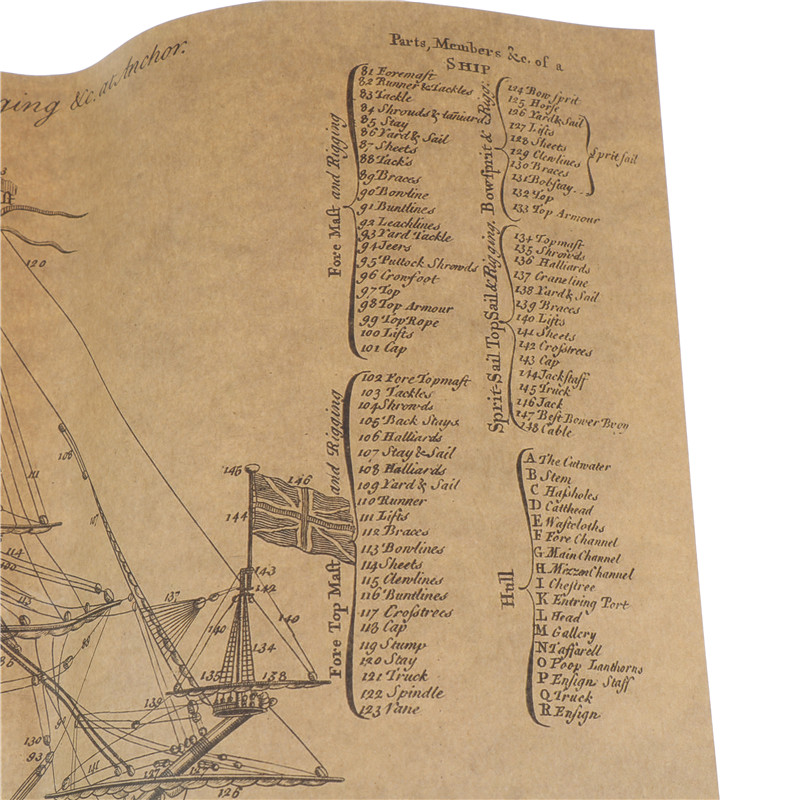 ging &c. at Anchor.
Parts, Members &c. of a
SHIP
Fore Mast and Rigging
81 Foremast
82 Runner & Tackles
83 Tackle
84 Shrouds & laniards
85 Stay
86 Yard & Sail
87 Sheets
88 Tacks
89 Braces
90 Bowline
91 Buntlines
92 Leachlines
93 Yard Tackle
94 Jeers
95 Puttock Shrowds
96 Crowfoot
97 Top
98 Top Armour
99 Top Rope
100 Lifts
101 Cap
Fore Top Mast and Rigging
102 Fore Topmast
103 Tackles
104 Shrowds
105 Back Stays
106 Halliards
107 Stay & Sail
108 Halliards
109 Yard & Sail
110 Runner
111 Lifts
112 Braces
113 Bowlines
114 Sheets
115 Clewlines
116 Buntlines
117 Crosstrees
118 Cap
119 Stump
120 Stay
121 Truck
122 Spindle
123 Vane
Bowsprit & Rigg:
124 Bowsprit
125 Horse
126 Yard & Sail
127 Lifts
128 Sheets
129 Clewlines
130 Braces
131 Bobstay
Spritsail
132 Top
133 Top Armour
Sprit-Sail Top Sail & Rigging.
134 Topmast
135 Shrowds
136 Halliards
137 Craneline
138 Yard & Sail
139 Braces
140 Lifts
141 Sheets
142 Crosstrees
143 Cap
144 Jackstaff
145 Truck
146 Jack
147 Best Bower Buoy
148 Cable
Hull
A The Cutwater
B Stem
C Hassholes
D Catthead
E Wastcloths
F Fore Channel
G Main Channel
H Mizzn Channel
I Chestree
K Entring Port
L Head
M Gallery
N Taffarell
O Poop Lanthorns
P Ensign Staff
Q Truck
R Ensign
120
106
111
107
114
113
137
145
146
144
143
142
140
140
134
135
138
139
130
93
141
137
127
126